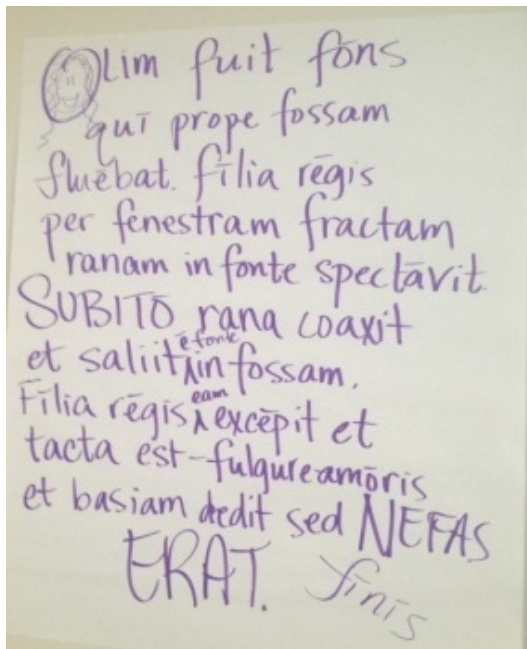 Olim fuit fōns
quī prope fossam
fluēbat. fīlia rēgis
per fenestram fractam
ranam in fonte spectāvit.
SUBITŌ rana coaxit
et saliit ē fonte in fossam.
Fīlia rēgis eam excēpit et
tacta est - fulgure amōris
et basiam dedit sed NEFAS
ERAT. finīs